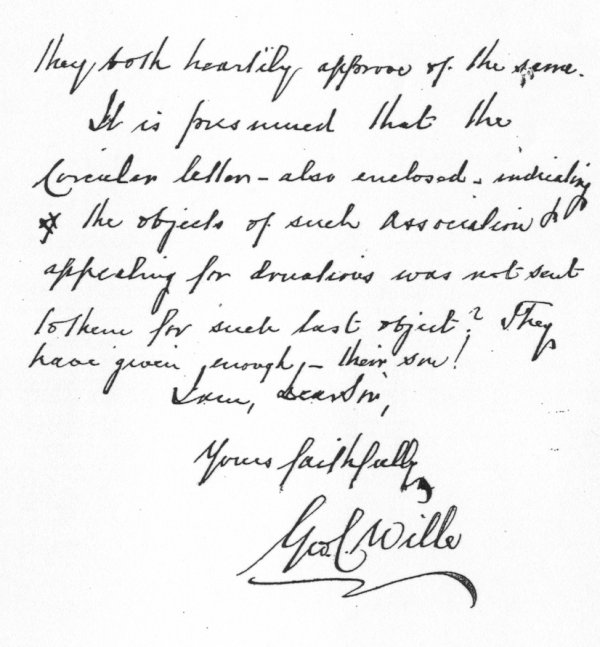 they both heartily approve of the same.
It is presumed that the
Circular letter - also enclosed - indicating
the objects of such Association &
appealing for donations was not sent
to them for such last object? They
have given enough, - their son!
I am, Dear Sir,
Yours faithfully,
Geo. C. Wille